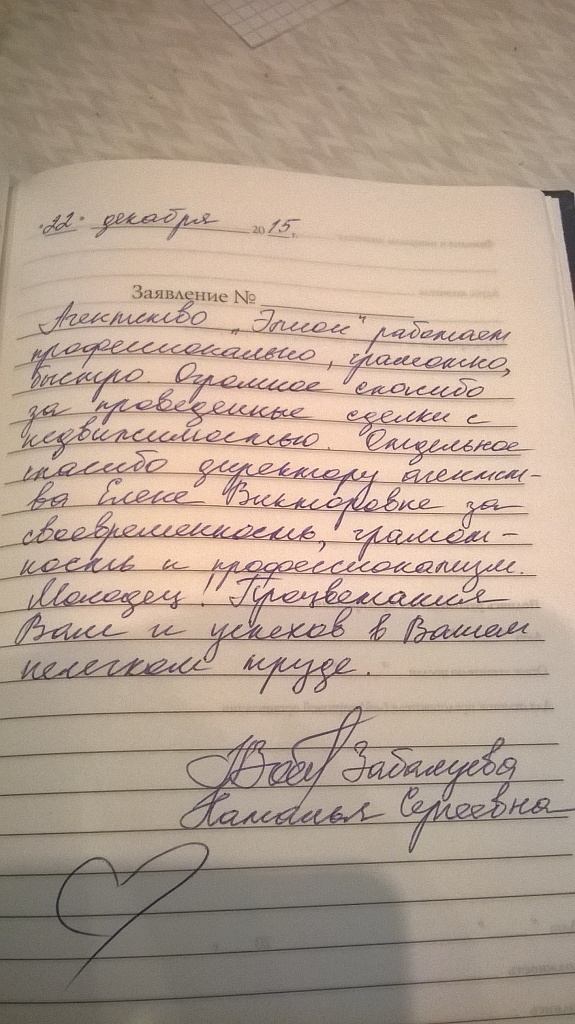 "22" декабря 2015 г.
Заявление №
Агентство „Эпион" работает
профессионально, грамотно,
быстро. Огромное спасибо
за проведенные сделки с
недвижимостью. Отдельное
спасибо директору агентст-
ва Елене Викторовне за
своевременность, грамот-
ность и профессионализм.
Молодец! Процветания
Вам и успехов в Вашем
нелегком труде.
Забалуева
Наталья Сергеевна